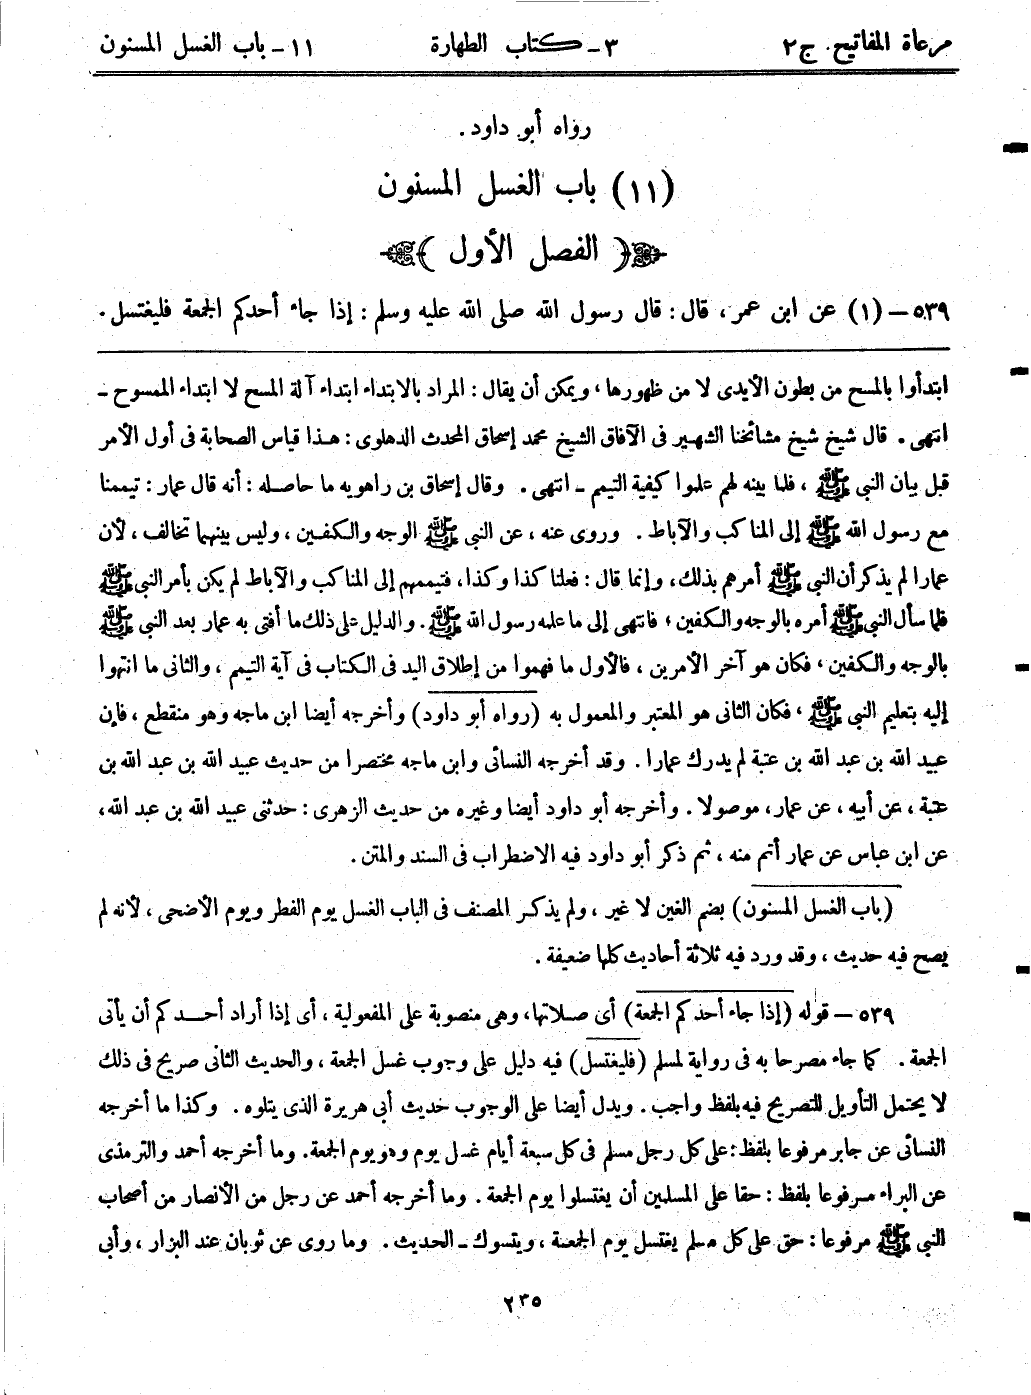 مرعاة المفاتيح ج٢
٣ـ كتاب الطهارة
١١ـ باب الغسل المسنون
رواه أبو داود .
(١١) باب الغسل المسنون
﴿ الفصل الأول ﴾
٥٣٩ – (١) عن ابن عمر ، قال : قال رسول الله صلى الله عليه وسلم : إذا جاء أحدكم الجمعة فليغتسل .
ابتدأوا بالمسح من بطون الأيدى لا من ظهورها ، ويمكن أن يقال : المراد بالابتداء ابتداء آلة المسح لا ابتداء الممسوح ـ
انتهى . قال شيخ شيخ مشائخنا الشهير فى الآفاق الشيخ محمد إسحاق المحدث الدهلوى : هذا قياس الصحابة فى أول الأمر
قبل بيان النبى ﷺ ، فلما بينه لهم علموا كيفية التيمم ـ انتهى . وقال إسحاق بن راهويه ما حاصله : أنه قال عمار : تيممنا
مع رسول الله ﷺ إلى المناكب والآباط . وروى عنه ، عن النبى ﷺ الوجه والكفين ، وليس بينهما تخالف ، لأن
عمارا لم يذكر أن النبى ﷺ أمرهم بذلك ، وإنما قال : فعلنا كذا وكذا ، فتيممهم إلى المناكب والآباط لم يكن بأمر النبى ﷺ
فلما سأل النبى ﷺ أمره بالوجه والكفين ، فانتهى إلى ما علمه رسول الله ﷺ . والدليل على ذلك ما أفتى به عمار بعد النبى ﷺ
بالوجه والكفين ، فكان هو آخر الأمرين ، فالأول ما فهموا من إطلاق اليد فى الكتاب فى آية التيمم ، والثانى ما انتهوا
إليه بتعليم النبى ﷺ ، فكان الثانى هو المعتبر والمعمول به (رواه أبو داود) وأخرجه أيضا ابن ماجه وهو منقطع ، فإن
عبيد الله بن عبد الله بن عتبة لم يدرك عمارا . وقد أخرجه النسائى وابن ماجه مختصرا من حديث عبيد الله بن عبد الله بن
عتبة ، عن أبيه ، عن عمار ، موصولا . وأخرجه أبو داود أيضا وغيره من حديث الزهرى : حدثنى عبيد الله بن عبد الله ،
عن ابن عباس عن عمار أتم منه ، ثم ذكر أبو داود فيه الاضطراب فى السند والمتن .
(باب الغسل المسنون) بضم الغين لا غير ، ولم يذكر المصنف فى الباب الغسل يوم الفطر ويوم الأضحى ، لأنه لم
يصح فيه حديث ، وقد ورد فيه ثلاثة أحاديث كلها ضعيفة .
٥٣٩ – قوله (إذا جاء أحدكم الجمعة) أى صلاتها ، وهى منصوبة على المفعولية ، أى إذا أراد أحدكم أن يأتى
الجمعة . كما جاء مصرحا به فى رواية لمسلم (فليغتسل) فيه دليل على وجوب غسل الجمعة ، والحديث الثانى صريح فى ذلك
لا يحتمل التأويل للتصريح فيه بلفظ واجب . ويدل أيضا على الوجوب حديث أبى هريرة الذى يتلوه . وكذا ما أخرجه
النسائى عن جابر مرفوعا بلفظ : على كل رجل مسلم فى كل سبعة أيام غسل يوم وهو يوم الجمعة . وما أخرجه أحمد والترمذى
عن البراء مرفوعا بلفظ : حقا على المسلمين أن يغتسلوا يوم الجمعة . وما أخرجه أحمد عن رجل من الأنصار من أصحاب
النبى ﷺ مرفوعا : حق على كل مسلم يغتسل يوم الجمعة ، ويتسوك ـ الحديث . وما روى عن ثوبان عند البزار ، وأبى
٢٣٥